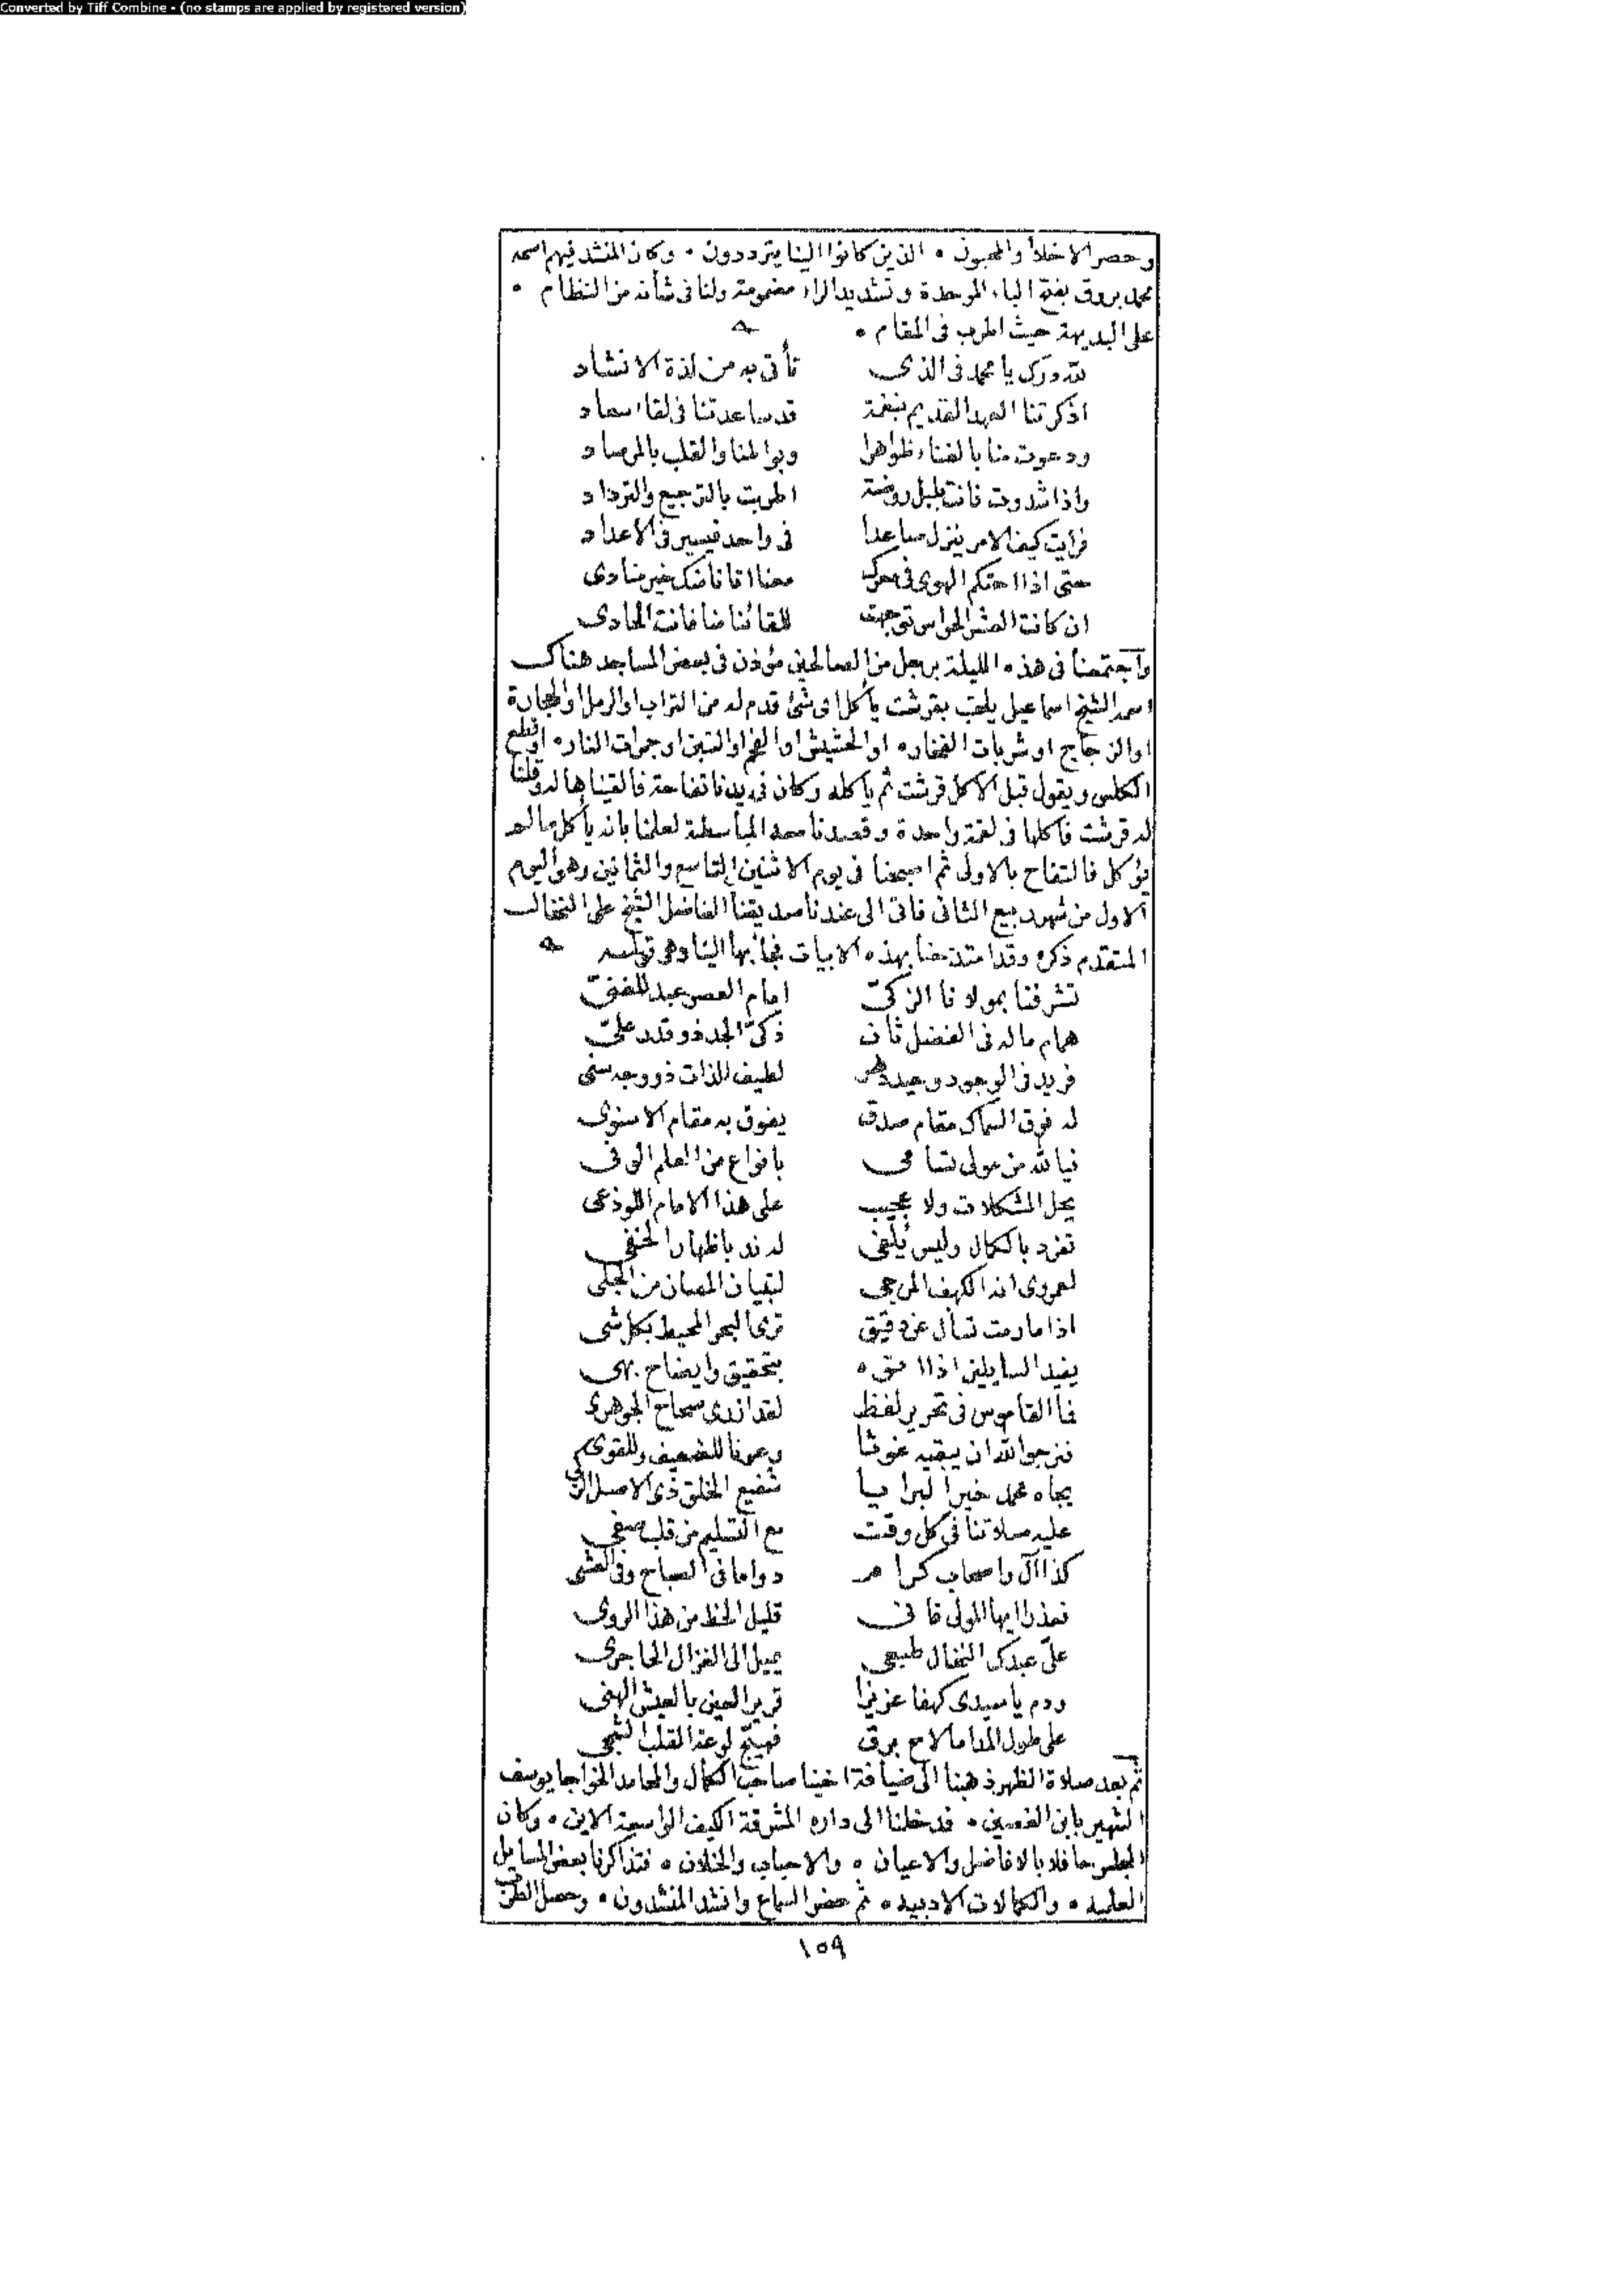 Converted by Tiff Combine - (no stamps are applied by registered version)
وحضر الاخلاء والمحبون • الذين كانوا الينا يترددون • وكان المنشد فيهم اسمه
محمد بروق بفتح الباء الموحدة وتشديد الراء مضمومة ولنا فى شأنه من النظام •
على البديهة حيث اطرب فى المقام •
لله درك يا محمد فى الذى تأتى به من لذة الانشاد
اذكرتنا العهد القديم بنغمة قد ساعدتنا فى لقاء سعاد
ودعوت منا بالغناء ظواهرا وبواطنا والقلب بالمرصاد
واذا شدوت فانت بلبل روضة اطربت بالترجيع والترداد
فرايت كيف الامر ينزل صاعدا فى واحد فيسير فى الاعداد
حتى اذا احتكم الهوى فى معرك معنا اتانا منك خير منادى
ان كانت العشر الحواس توجهت للقائنا منا فانت الحادى
واجتمعنا فى هذه الليلة برجل من الصالحين مؤذن فى بعض المساجد هناك
اسمه الشيخ اسماعيل يلقب بقرشت يأكل اى شئ قدم له من التراب او الرمل او الحجارة
او الزجاج او شربات الفخاره او الحشيش او الفحم او التبن او جمرات الناره او قطع
الكلس ويقول قبل الاكل قرشت ثم يأكله وكان فى يدنا تفاحة فالقيناها له وقلنا
له قرشت فاكلها فى لقمة واحدة وقصدنا معه المباسطة لعلمنا بانه يأكل مالم
يؤكل فالتفاح بالاولى ثم اصبحنا فى يوم الاثنين التاسع والثمانين وهو اليوم
الاول من شهر ربيع الثانى فاتى الى عندنا صديقنا الفاضل الشيخ على النخال
المتقدم ذكره وقد امتدحنا بهذه الابيات فجاء بها الينا وهو قوله
تشرفنا بمولانا الزكىّ امام العصر عبد للغنىّ
همام ماله فى الفضل ثان ذكىّ الجد ذو قدر علىّ
فريد فى الوجود وحيد دهر لطيف الذات ذو وجه سنى
له فوق السماك مقام صدق يفوق به مقام الاسنوى
فيالله من مولى تسامى بانواع من العلم الوفى
يحل المشكلات ولا عجيب على هذا الامام اللوذعى
تفرد بالكمال وليس يُلفى له ند باظهار الخفى
لعمرى انه الكهف المرجى لتبيان المصان من الجلى
اذا مارمت تسأل عن دقيق ترى البحر المحيط بكل شى
يفيد السايلين اذا اتوه بتحقيق وايضاح بهى
فما القاموس فى تحرير لفظ لقد ازرى صحاح الجوهرى
فنرجوالله ان يبقيه غوثا وعونا للضعيف وللقوى
بجاه محمد خير البرايا شفيع الخلق ذى الاصل الزكى
عليه صلاتنا فى كل وقت مع التسليم من قلب صفى
كذا آل واصحاب كرام دواما فى الصباح وفى العشى
فعذرا ايها المولى فانى قليل الحظ من هذا الروى
علىّ عبدك النخال طبعى يميل الى الغزال الحاجرى
ودم ياسيدى كهفا عزيزا قرير العين بالعيش الهنى
على طول المدا مالاح برق فهيّج لوعة القلب الشجى
ثم بعد صلاة الظهر ذهبنا الى ضيافة اخينا صاحب الكمال والمحامد الخواجا يوسف
الشهير بابن الغصين • فدخلنا الى داره المشرقة الكيف الواسعة الاين • وكان
المجلس حافلا بالافاضل والاعيان • والاحباب والخلان • فتذاكرنا بعض المسايل
العلمية • والكمالات الادبية • ثم حضر السماع وانشد المنشدون • وحصل الطرب
١٥٩